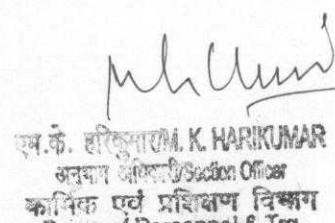 एम.के. हरिकुमार/M. K. HARIKUMAR
अनुभाग अधिकारी/Section Officer
कार्मिक एवं प्रशिक्षण विभाग
Personnel & Trg.